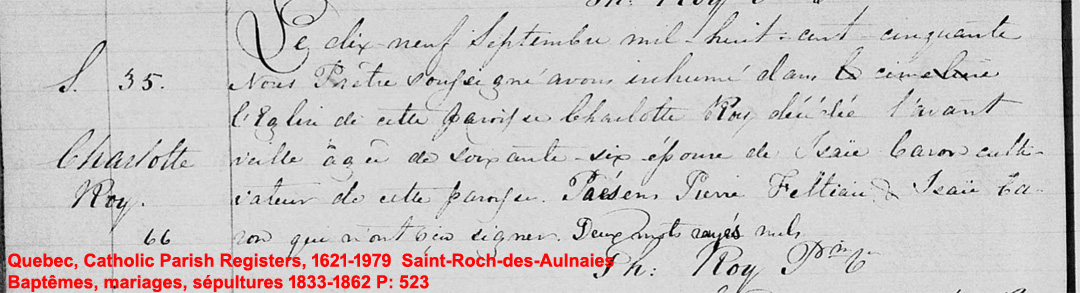 Le dix-neuf Septembre mil-huit-cent-cinquante
S. 35. Nous Prêtre soussigné avons inhumé dans le cimetière
l'Eglise de cette paroisse Charlotte Roy décédée l'avant
Charlotte veille âgée de soixante-six épouse de Isaïe Caron culti-
Roy. vateur de cette paroisse. Présens Pierre Pelletier & Isaïe Ca-
66 ron qui n'ont su signer. Deux mots rayés nuls
Ph: Roy Ptre
Quebec, Catholic Parish Registers, 1621-1979 Saint-Roch-des-Aulnaies
Baptêmes, mariages, sépultures 1833-1862 P: 523